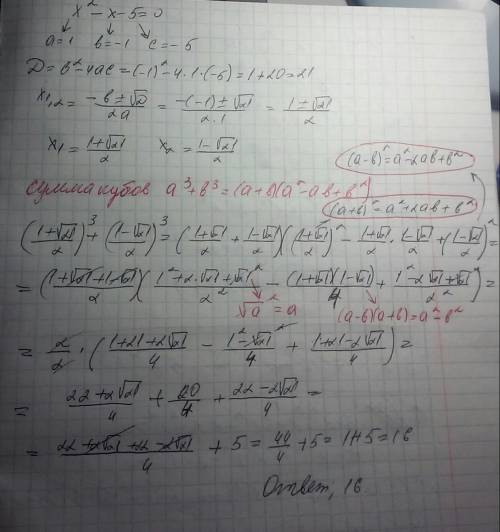 x² - x - 5 = 0
a=1 в=-1 c=-5
D = в² - 4ac = (-1)² - 4·1·(-5) = 1+20 = 21
x₁,₂ = (-в ± √D)/2a = (-(-1) ± √21)/(2·1) = (1 ± √21)/2
x₁ = (1+√21)/2 x₂ = (1-√21)/2
(a-в)² = a² - 2aв + в²
сумма кубов a³+в³ = (a+в)(a² - aв + в²)
(a+в)² = a² + 2aв + в²
((1+√21)/2)³ + ((1-√21)/2)³ = ((1+√21)/2 + (1-√21)/2)(((1+√21)/2)² - (1+√21)/2 · (1-√21)/2 + ((1-√21)/2)²) =
= ((1+√21+1-√21)/2)((1²+2·√21+√21²)/2² - ((1+√21)(1-√21))/4 + (1²-2√21+√21²)/2²) =
√a² = a (a-в)(a+в) = a²-в²
= 2/2 · ((1+21+2√21)/4 - (1²-√21²)/4 + (1+21-2√21)/4) =
= (22+2√21)/4 + 20/4 + (22-2√21)/4 =
= (22+2√21+22-2√21)/4 + 5 = 44/4 + 5 = 11+5 = 16
Ответ, 16